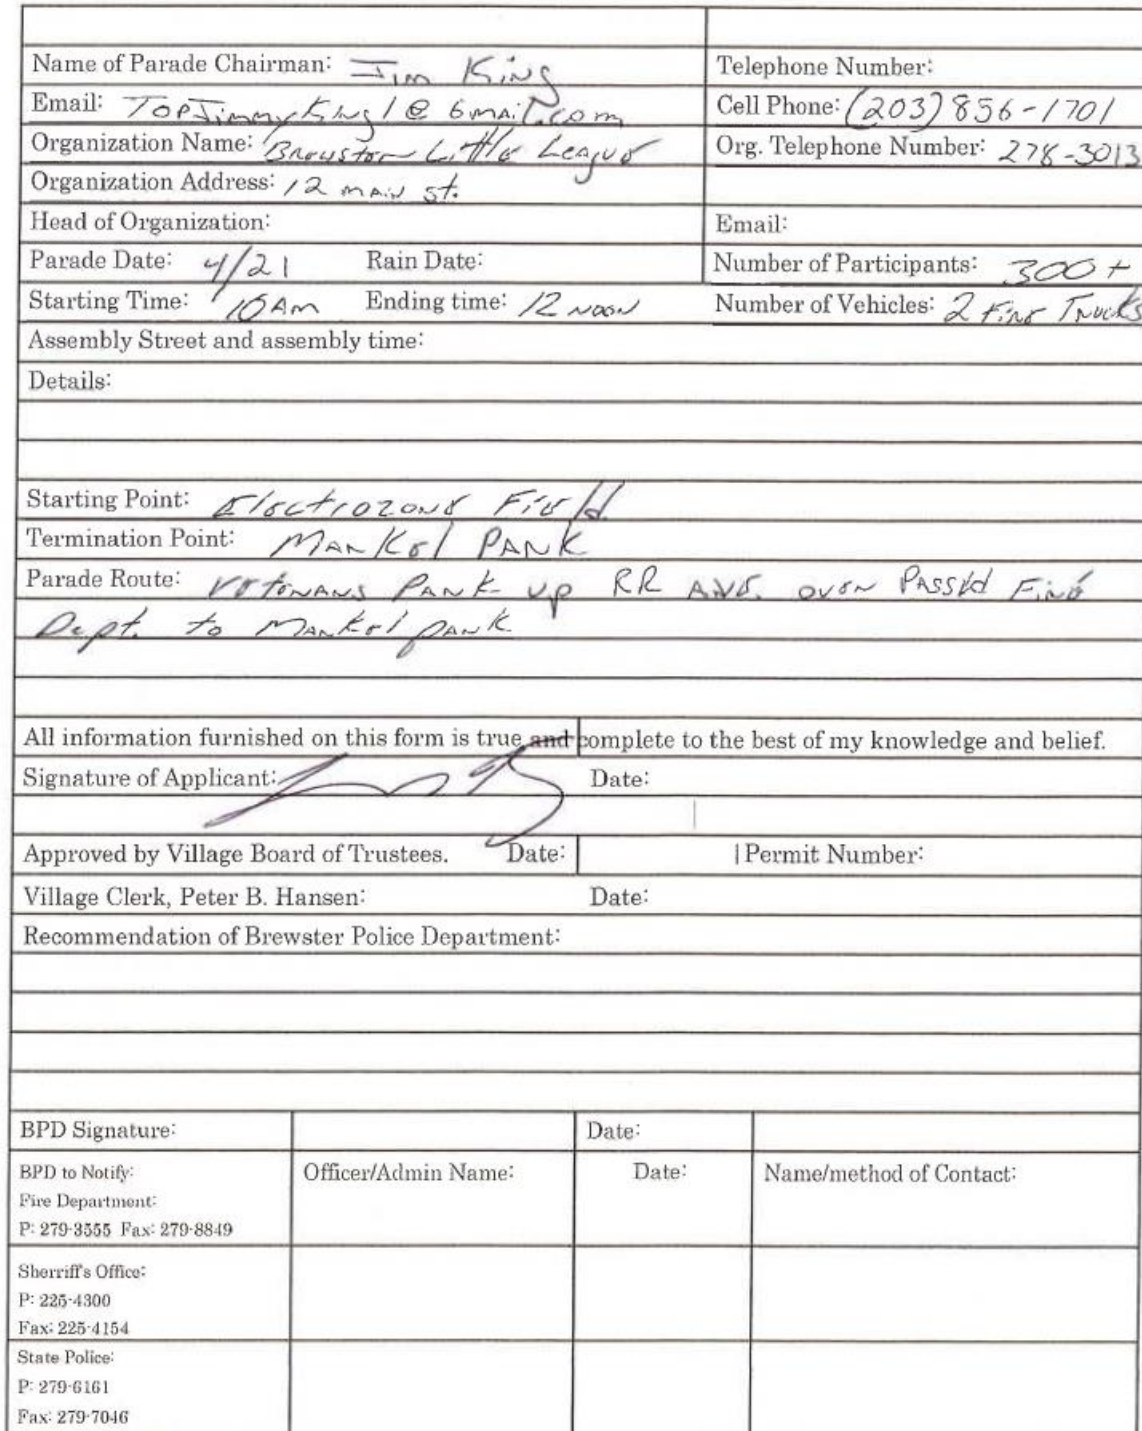 Name of Parade Chairman: Jim King Telephone Number:
Email: TopJimmyKing1@Gmail.com Cell Phone: (203) 856-1701
Organization Name: Brewster Little League Org. Telephone Number: 278-3013
Organization Address: 12 main st.
Head of Organization: Email:
Parade Date: 4/21 Rain Date: Number of Participants: 300+
Starting Time: 10 Am Ending time: 12 noon Number of Vehicles: 2 Fire Trucks
Assembly Street and assembly time:
Details:
Starting Point: Electrozone Field
Termination Point: Markel PARK
Parade Route: Veterans Park up RR Ave. over Passed Fire
Dept. to Markel park
All information furnished on this form is true and complete to the best of my knowledge and belief.
Signature of Applicant: Date:
Approved by Village Board of Trustees. Date: Permit Number:
Village Clerk, Peter B. Hansen: Date:
Recommendation of Brewster Police Department:
BPD Signature: Date:
BPD to Notify: Officer/Admin Name: Date: Name/method of Contact:
Fire Department:
P: 279-3555 Fax: 279-8849
Sherriff's Office:
P: 225-4300
Fax: 225-4154
State Police:
P: 279-6161
Fax: 279-7046